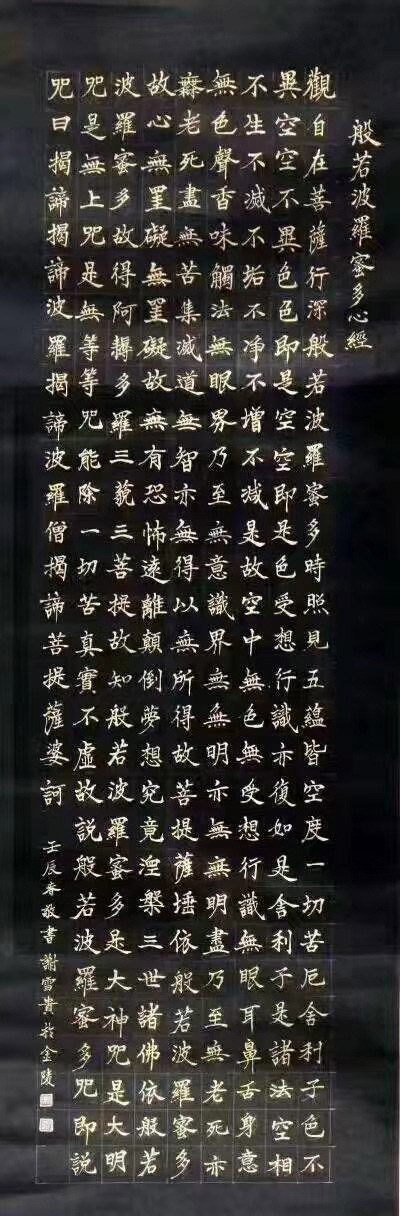 般若波羅蜜多心經
觀自在菩薩行深般若波羅蜜多時照見五蘊皆空度一切苦厄舍利子色不
異空空不異色色即是空空即是色受想行識亦復如是舍利子是諸法空相
不生不滅不垢不淨不增不減是故空中無色無受想行識無眼耳鼻舌身意
無色聲香味觸法無眼界乃至無意識界無無明亦無無明盡乃至無老死亦
無老死盡無苦集滅道無智亦無得以無所得故菩提薩埵依般若波羅蜜多
故心無罣礙無罣礙故無有恐怖遠離顛倒夢想究竟涅槃三世諸佛依般若
波羅蜜多故得阿耨多羅三藐三菩提故知般若波羅蜜多是大神咒是大明
咒是無上咒是無等等咒能除一切苦真實不虛故說般若波羅蜜多咒即說
咒曰揭諦揭諦波羅揭諦波羅僧揭諦菩提薩婆訶
壬辰春敬書謝雪貴於金陵